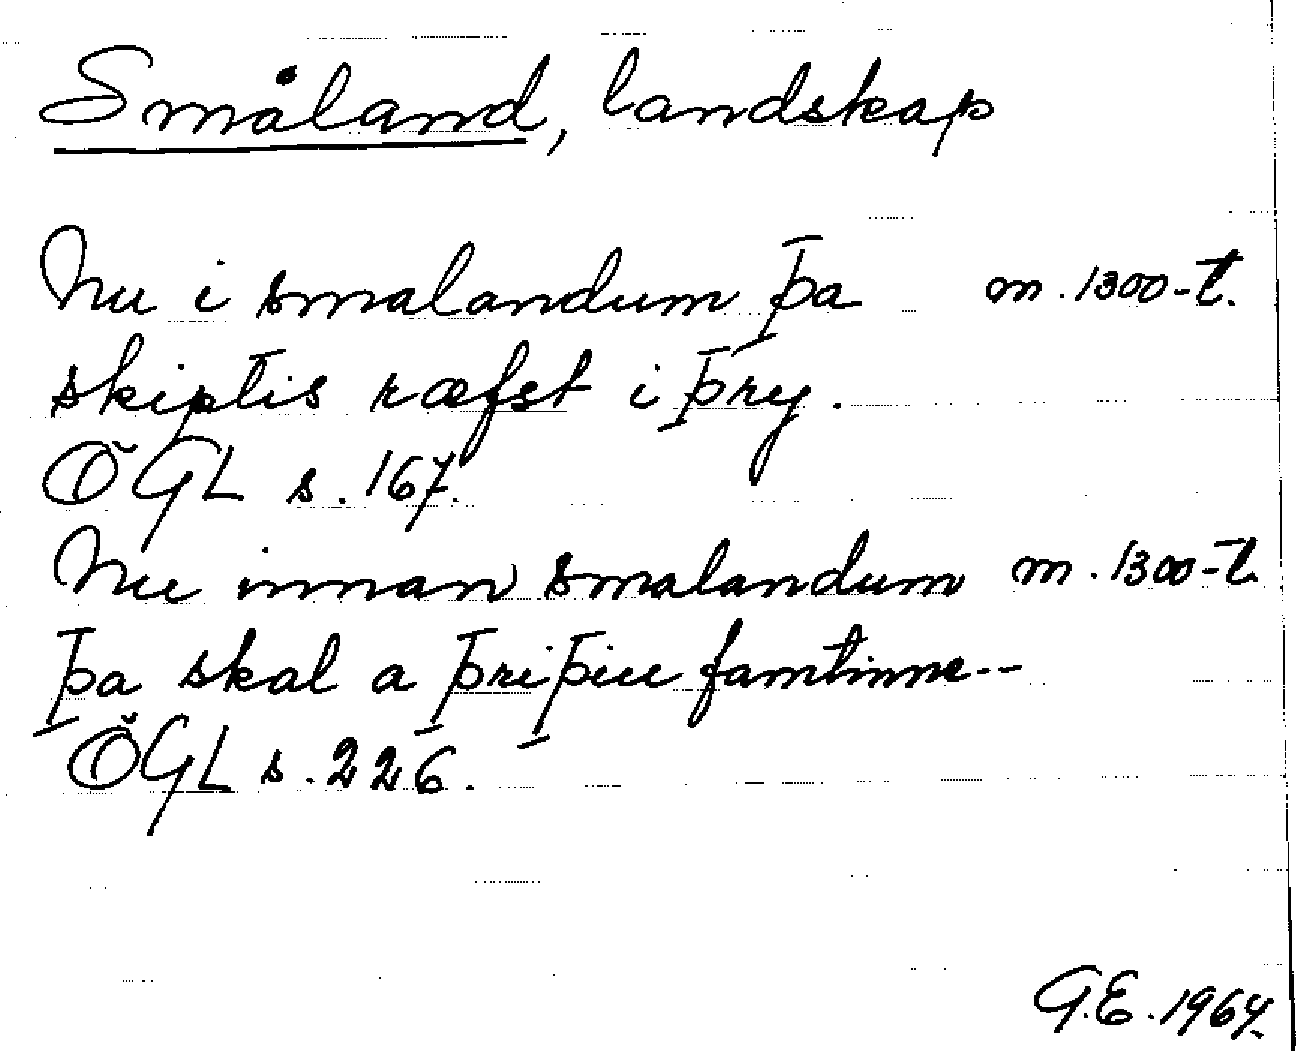 Småland, landskap
Nu i smalandum þa m. 1300-t.
skiptis ræfst i þry.
ÖGL s. 167.
Nu innan smalandum m. 1300-t.
þa skal a þriþiu famtinne--
ÖGL s. 226.
G.E. 1964.